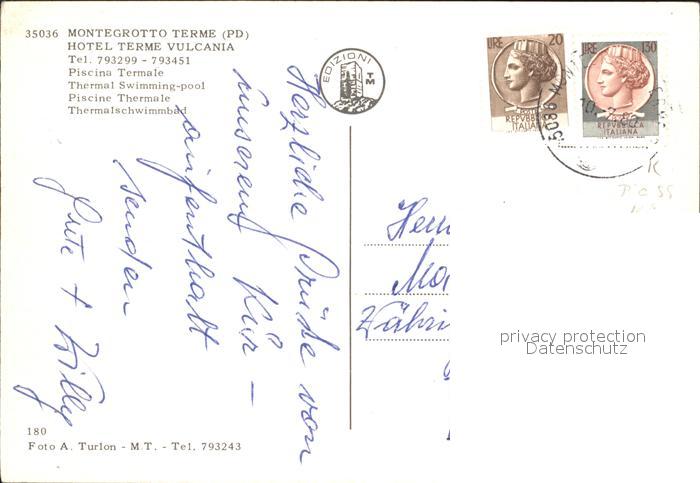 35036 MONTEGROTTO TERME (PD)
HOTEL TERME VULCANIA
Tel. 793299 - 793451
Piscina Termale
Thermal Swimming-pool
Piscine Thermale
Thermalschwimmbad
EDIZIONI
TM
LIRE 20
POSTE
REPVBBLICA
ITALIANA
LIRE 130
REPVBBLICA
ITALIANA
Herzliche Grüße von
unserem Kur-
aufenthalt
senden
Grete + Willy
Herrn
Ma
Zähri
privacy protection
Datenschutz
180
Foto A. Turlon - M.T. - Tel. 793243